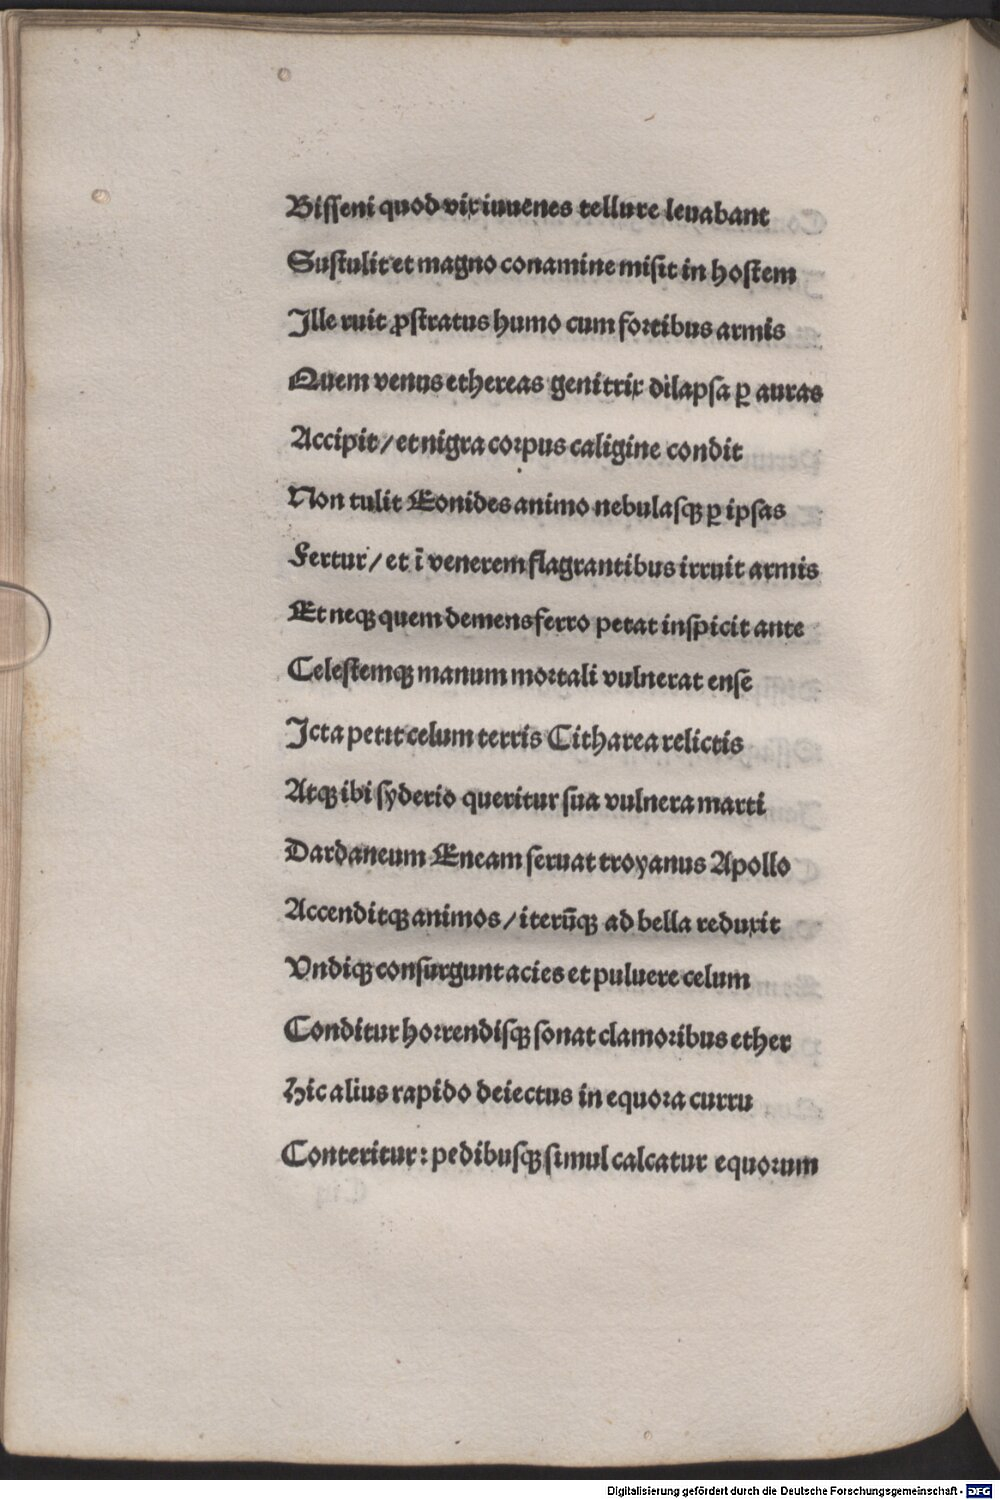 Bisseni quod vix iuuenes tellure leuabant
Sustulit et magno conamine misit in hostem
Ille ruit ꝓstratus humo cum fortibus armis
Quem venus ethereas genitrix dilapsa ꝑ auras
Accipit/ et nigra corpus caligine condit
Non tulit Eonides animo nebulasqꝫ ꝑ ipsas
Fertur/ et ī venerem flagrantibus irruit armis
Et neqꝫ quem demens ferro petat inspicit ante
Celestemqꝫ manum mortali vulnerat ense
Icta petit celum terris Citharea relictis
Atqꝫ ibi syderio queritur sua vulnera marti
Dardaneum Eneam seruat troyanus Apollo
Accenditqꝫ animos/ iterūqꝫ ad bella reduxit
Vndiqꝫ consurgunt acies et puluere celum
Conditur horrendisqꝫ sonat clamoribus ether
Hic alius rapido deiectus in equora curru
Conteritur: pedibusqꝫ simul calcatur equorum
Digitalisierung gefördert durch die Deutsche Forschungsgemeinschaft - DFG